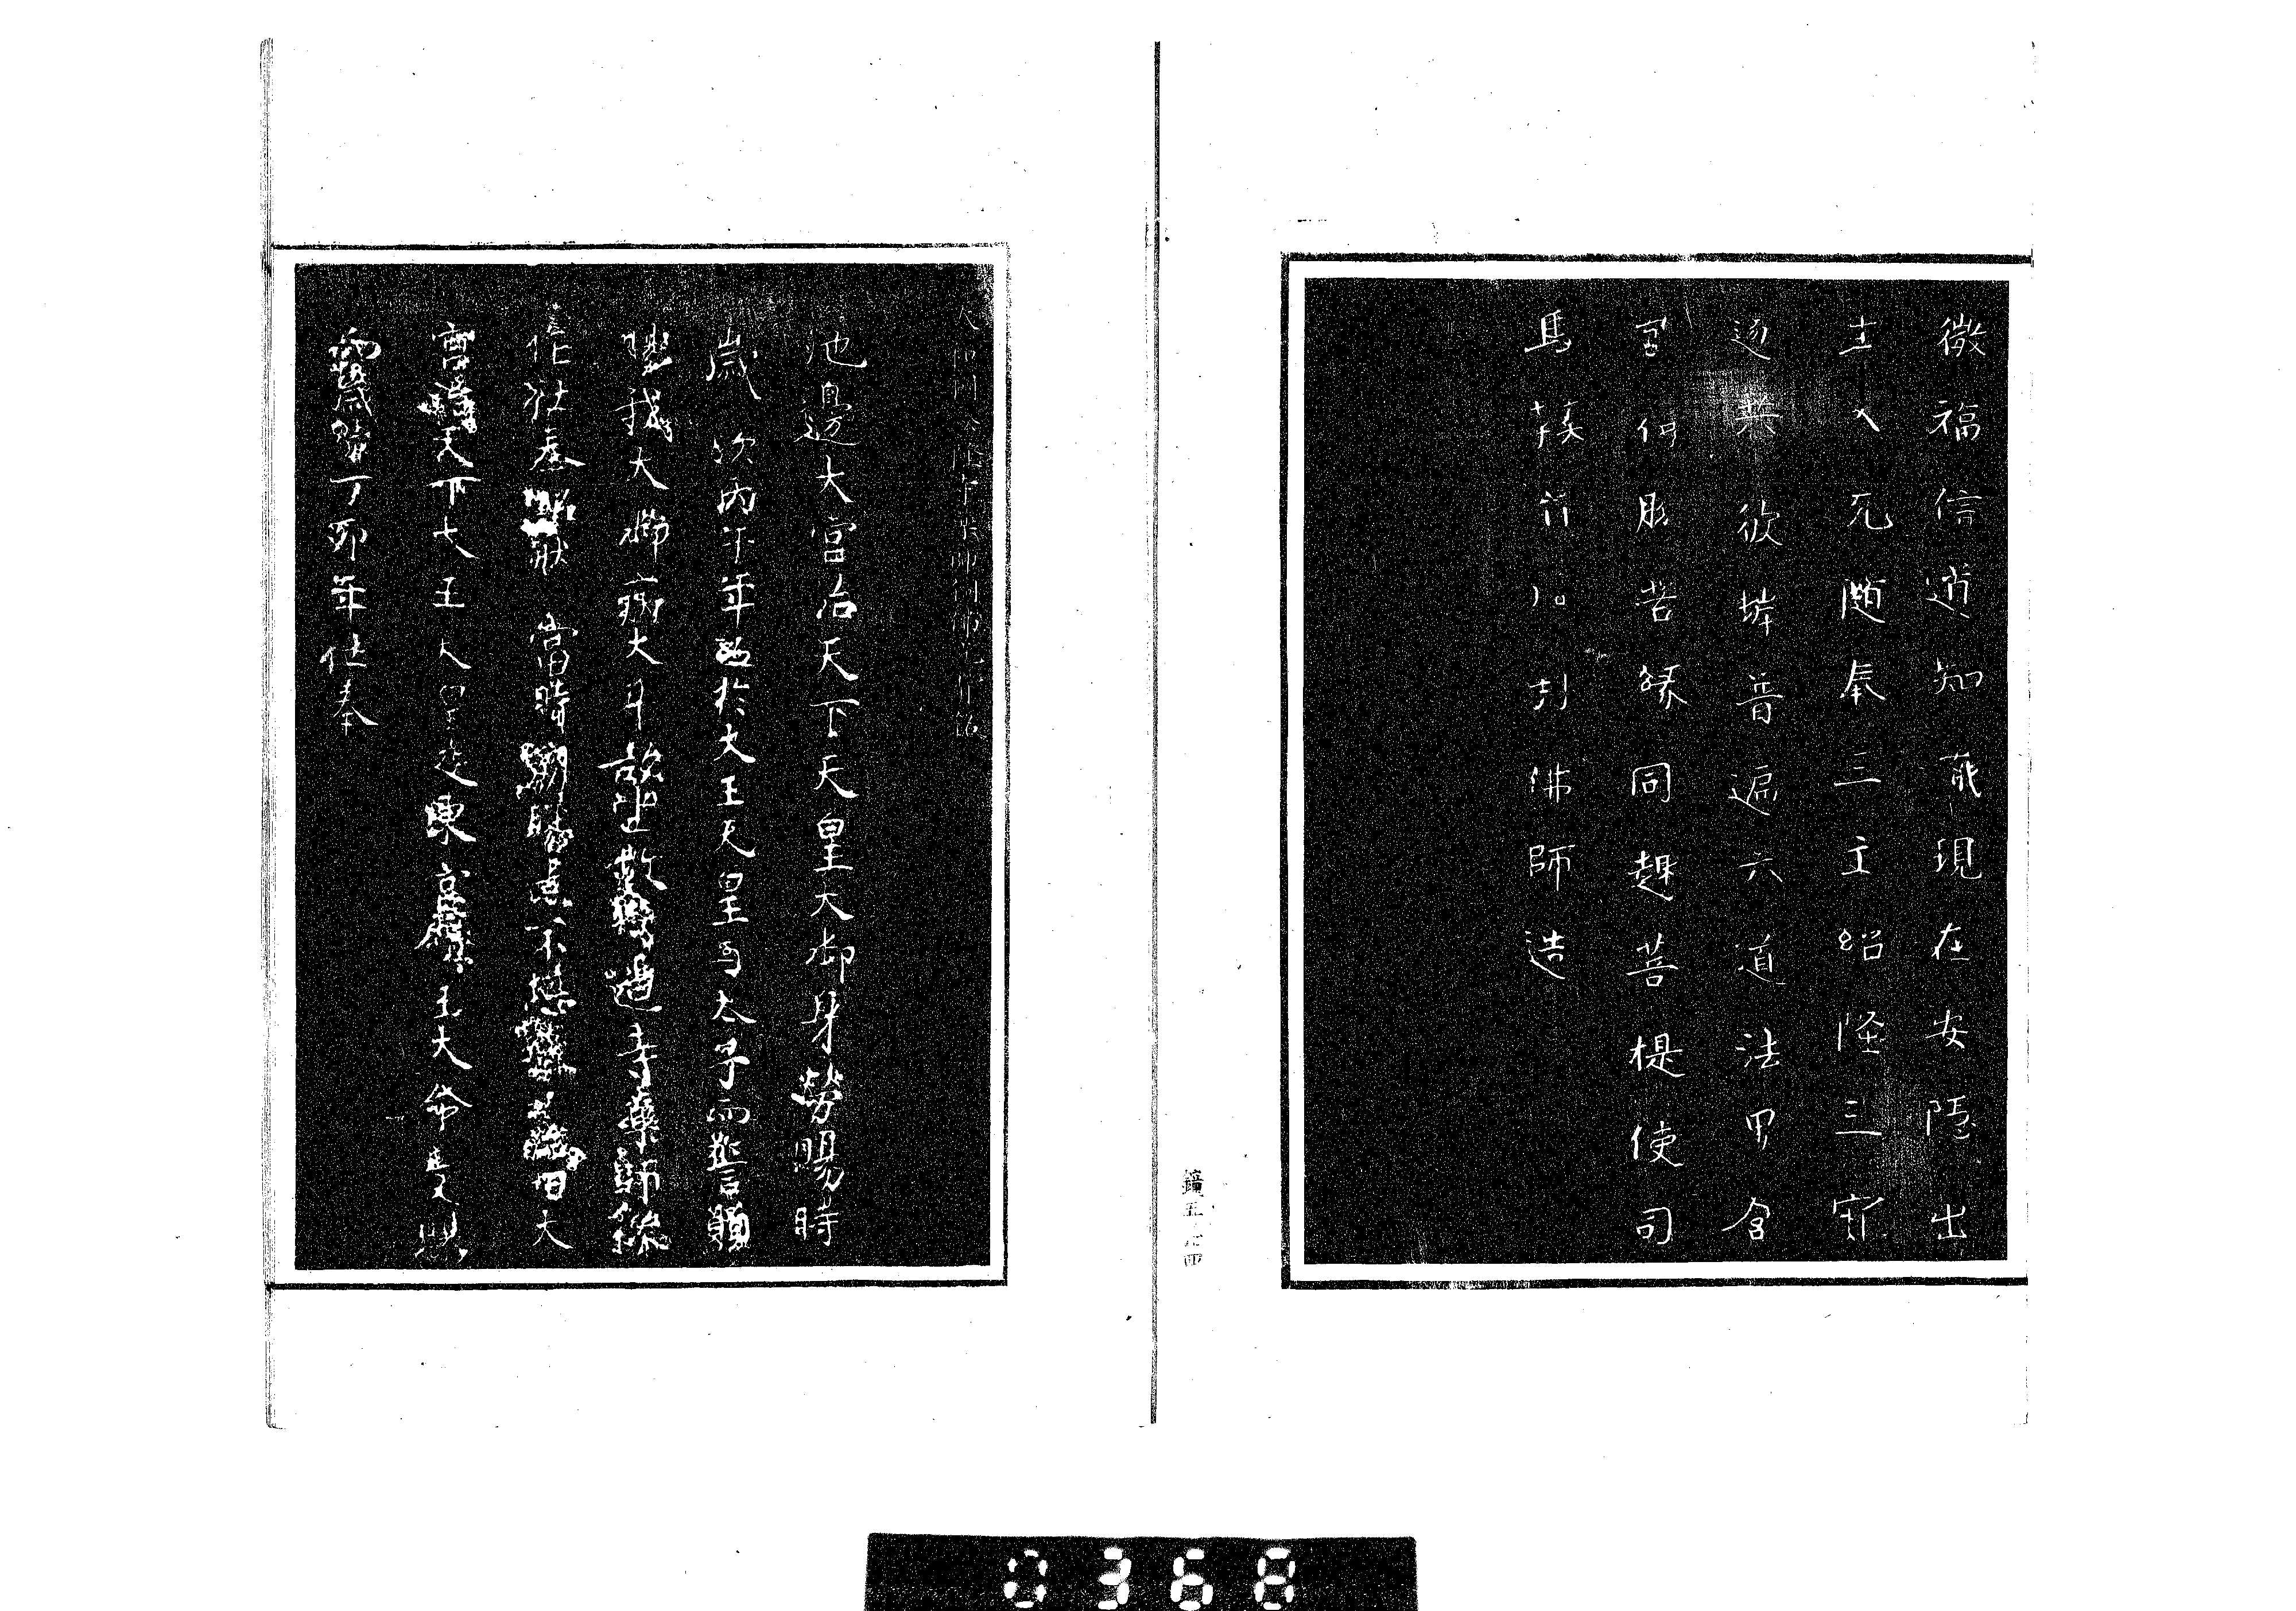 微福信道知識現在安隠出
生入死随奉三主紹隆三寶
遂共彼岸普遍六道法界含
識得脱苦縁同趣菩提使司
馬鞍首止利佛師造
池邊大宮治天下天皇大御身勞賜時
歳次丙午年召於大王天皇与太子而誓願
賜我大御病太平欲坐故将造寺薬師像
作仕奉詔然當時崩賜造不堪者小治田大
宮治天下大王天皇及東宮聖王大命受賜
而歳次丁卯年仕奉
0368